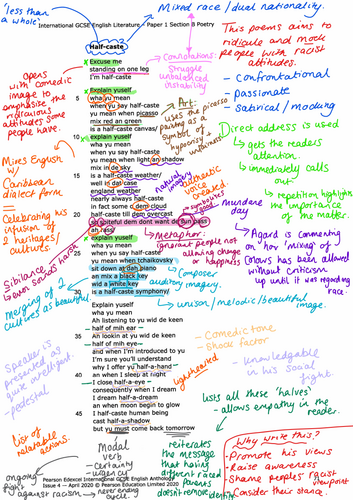 'less than a whole'
International GCSE English Literature – Paper 1 Section B Poetry
Mixed race / dual nationality.
Half-caste
This poems aims to
ridicule and mock
people with racist
attitudes.
- Confrontational
- Passionate
- Satirical / mocking
Connotations:
struggle
unbalanced
instability
opens
with comedic
image to
emphasise the
ridiculous
attitudes some
people have.
Excuse me
standing on one leg
I'm half-caste
Explain yuself
5
wha yu mean
when yu say half-caste
yu mean when picasso
mix red an green
is a half-caste canvas/
10
explain yuself
wha yu mean
when yu say half-caste
yu mean when light an shadow
mix in de sky
15
is a half-caste weather/
well in dat case
england weather
nearly always half-caste
in fact some o dem cloud
20
half-caste till dem overcast
so spiteful dem dont want de sun pass
ah rass/
explain yuself
wha yu mean
25
when yu say half-caste
yu mean when tchaikovsky
sit down at dah piano
an mix a black key
wid a white key
30
is a half-caste symphony/
Explain yuself
wha yu mean
Ah listening to yu wid de keen
half of mih ear
35
Ah lookin at yu wid de keen
half of mih eye
and when I'm introduced to yu
I'm sure you'll understand
why I offer yu half-a-hand
40
an when I sleep at night
I close half-a-eye
consequently when I dream
I dream half-a-dream
an when moon begin to glow
45
I half-caste human being
cast half-a-shadow
but yu must come back tomorrow
Art:
uses the picasso
painting as a
symbol of
hypocrisy
Direct address is used
↳ gets the readers
attention.
↳ immediately calls
out
↳ repetition highlights
the importance
of the matter.
Mixes English w/
Caribbean
dialect form
Celebrating his
infusion of 2
heritages/
cultures.
natural imagery
authentic
voice
created
mundane
day
Agard is commenting
on how 'mixing' of
Colours has been allowed
without criticism
up until it was regarding
race.
Metaphor:
ignorant people not
allowing change
or happiness
Sibilance
Merging of 2
cultures as beautiful
Composer
auditory imagery.
unison / melodic / beautiful
image.
Speaker is
presented as
quite intelligent.
- pedestal
- Comedic tone
- Shock factor
- Knowledgable
in his social
fight.
lighthearted
lists all these 'halves'
- allows empathy in the
reader.
list of
relatable
items.
Modal
verb
- Certainty
- urgency
never ending
ongoing
fight
against racism
reiterates
the message
that having
different raced
parents
doesn't remove identity
Why write this?
• Promote his views
• Raise awareness
• Shame peoples racist viewpoint
• Consider their stance
Pearson Edexcel International GCSE English Anthology
Issue 4 – April 2020 © Pearson Education Limited 2020